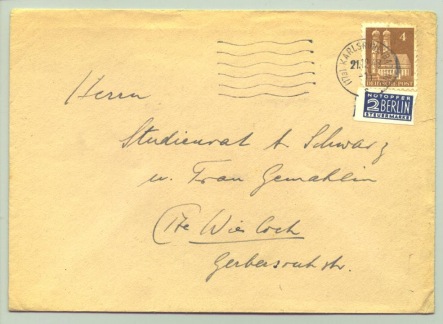 (17a) KARLSRUHE
21.12.
4
DEUTSCHE POST
NOTOPFER
2 BERLIN
STEUERMARKE
Herrn
Studienrat t. Schwarz
u. Frau Gemahlin
(17a) Wiesloch
Gerbersruhstr.